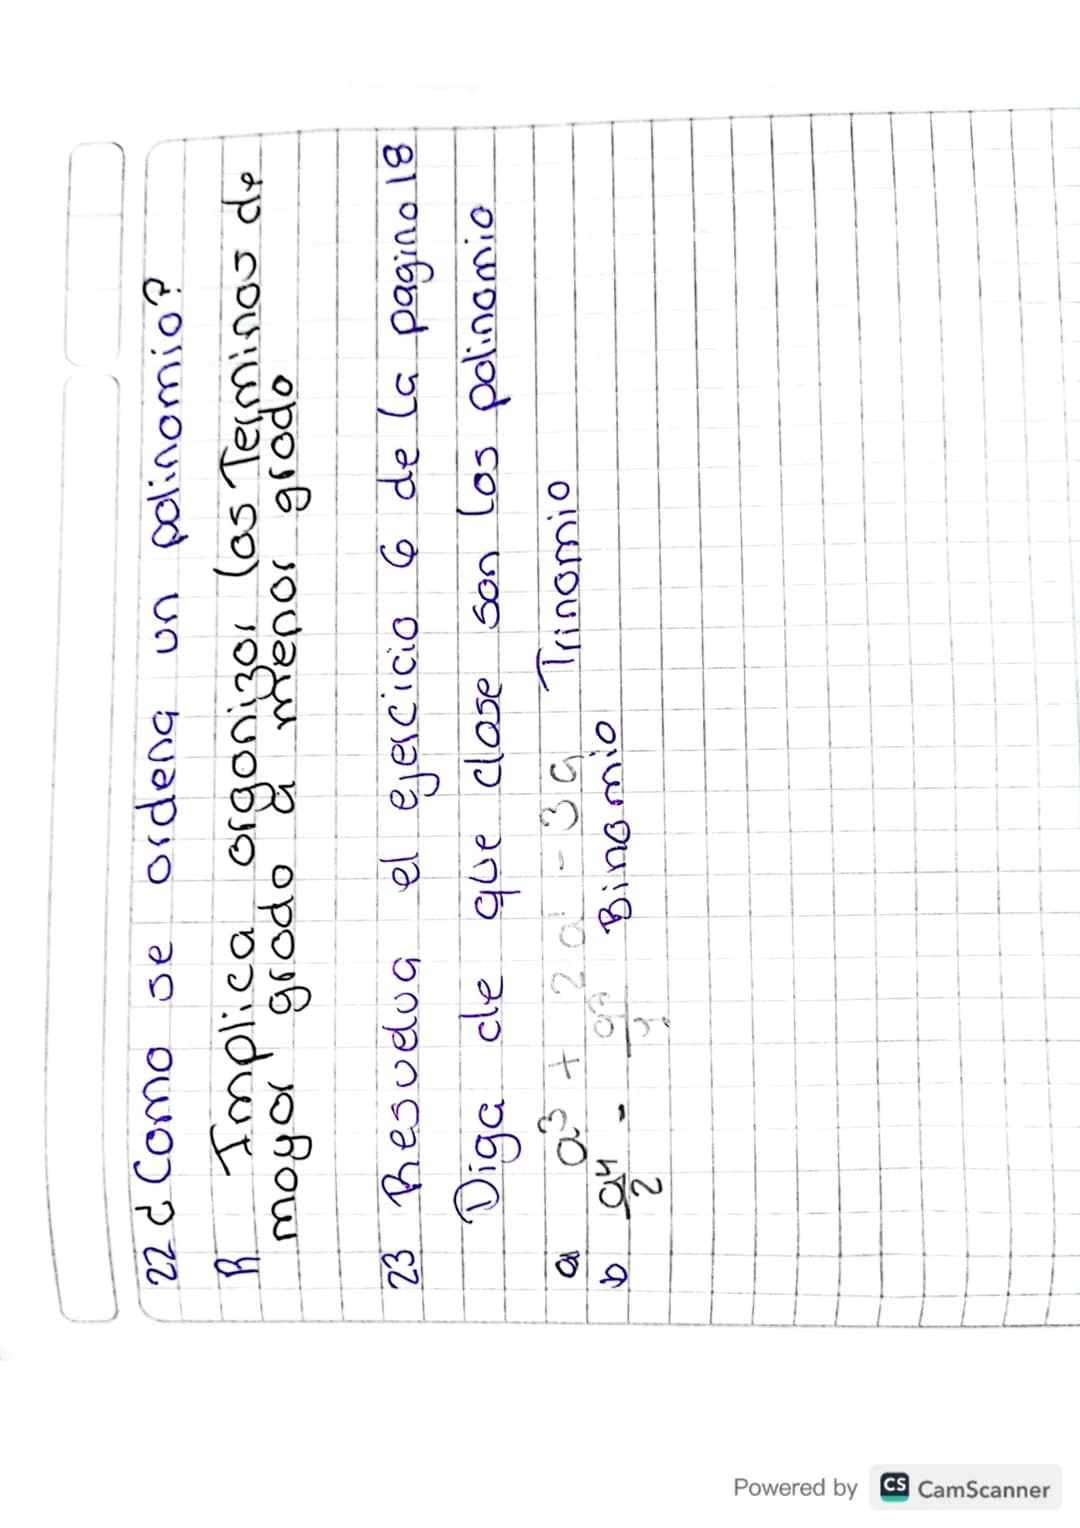 22 ¿Como se ordena un polinomio?
R Implica organizar los Terminos de
mayor grado a menor grado
23 Resuelva el ejercicio 6 de la pagina 18
Diga de que clase son los polinomio
a a³ + 2a - 3a Trinomio
b a⁴/2 - Binomio
Powered by CS CamScanner